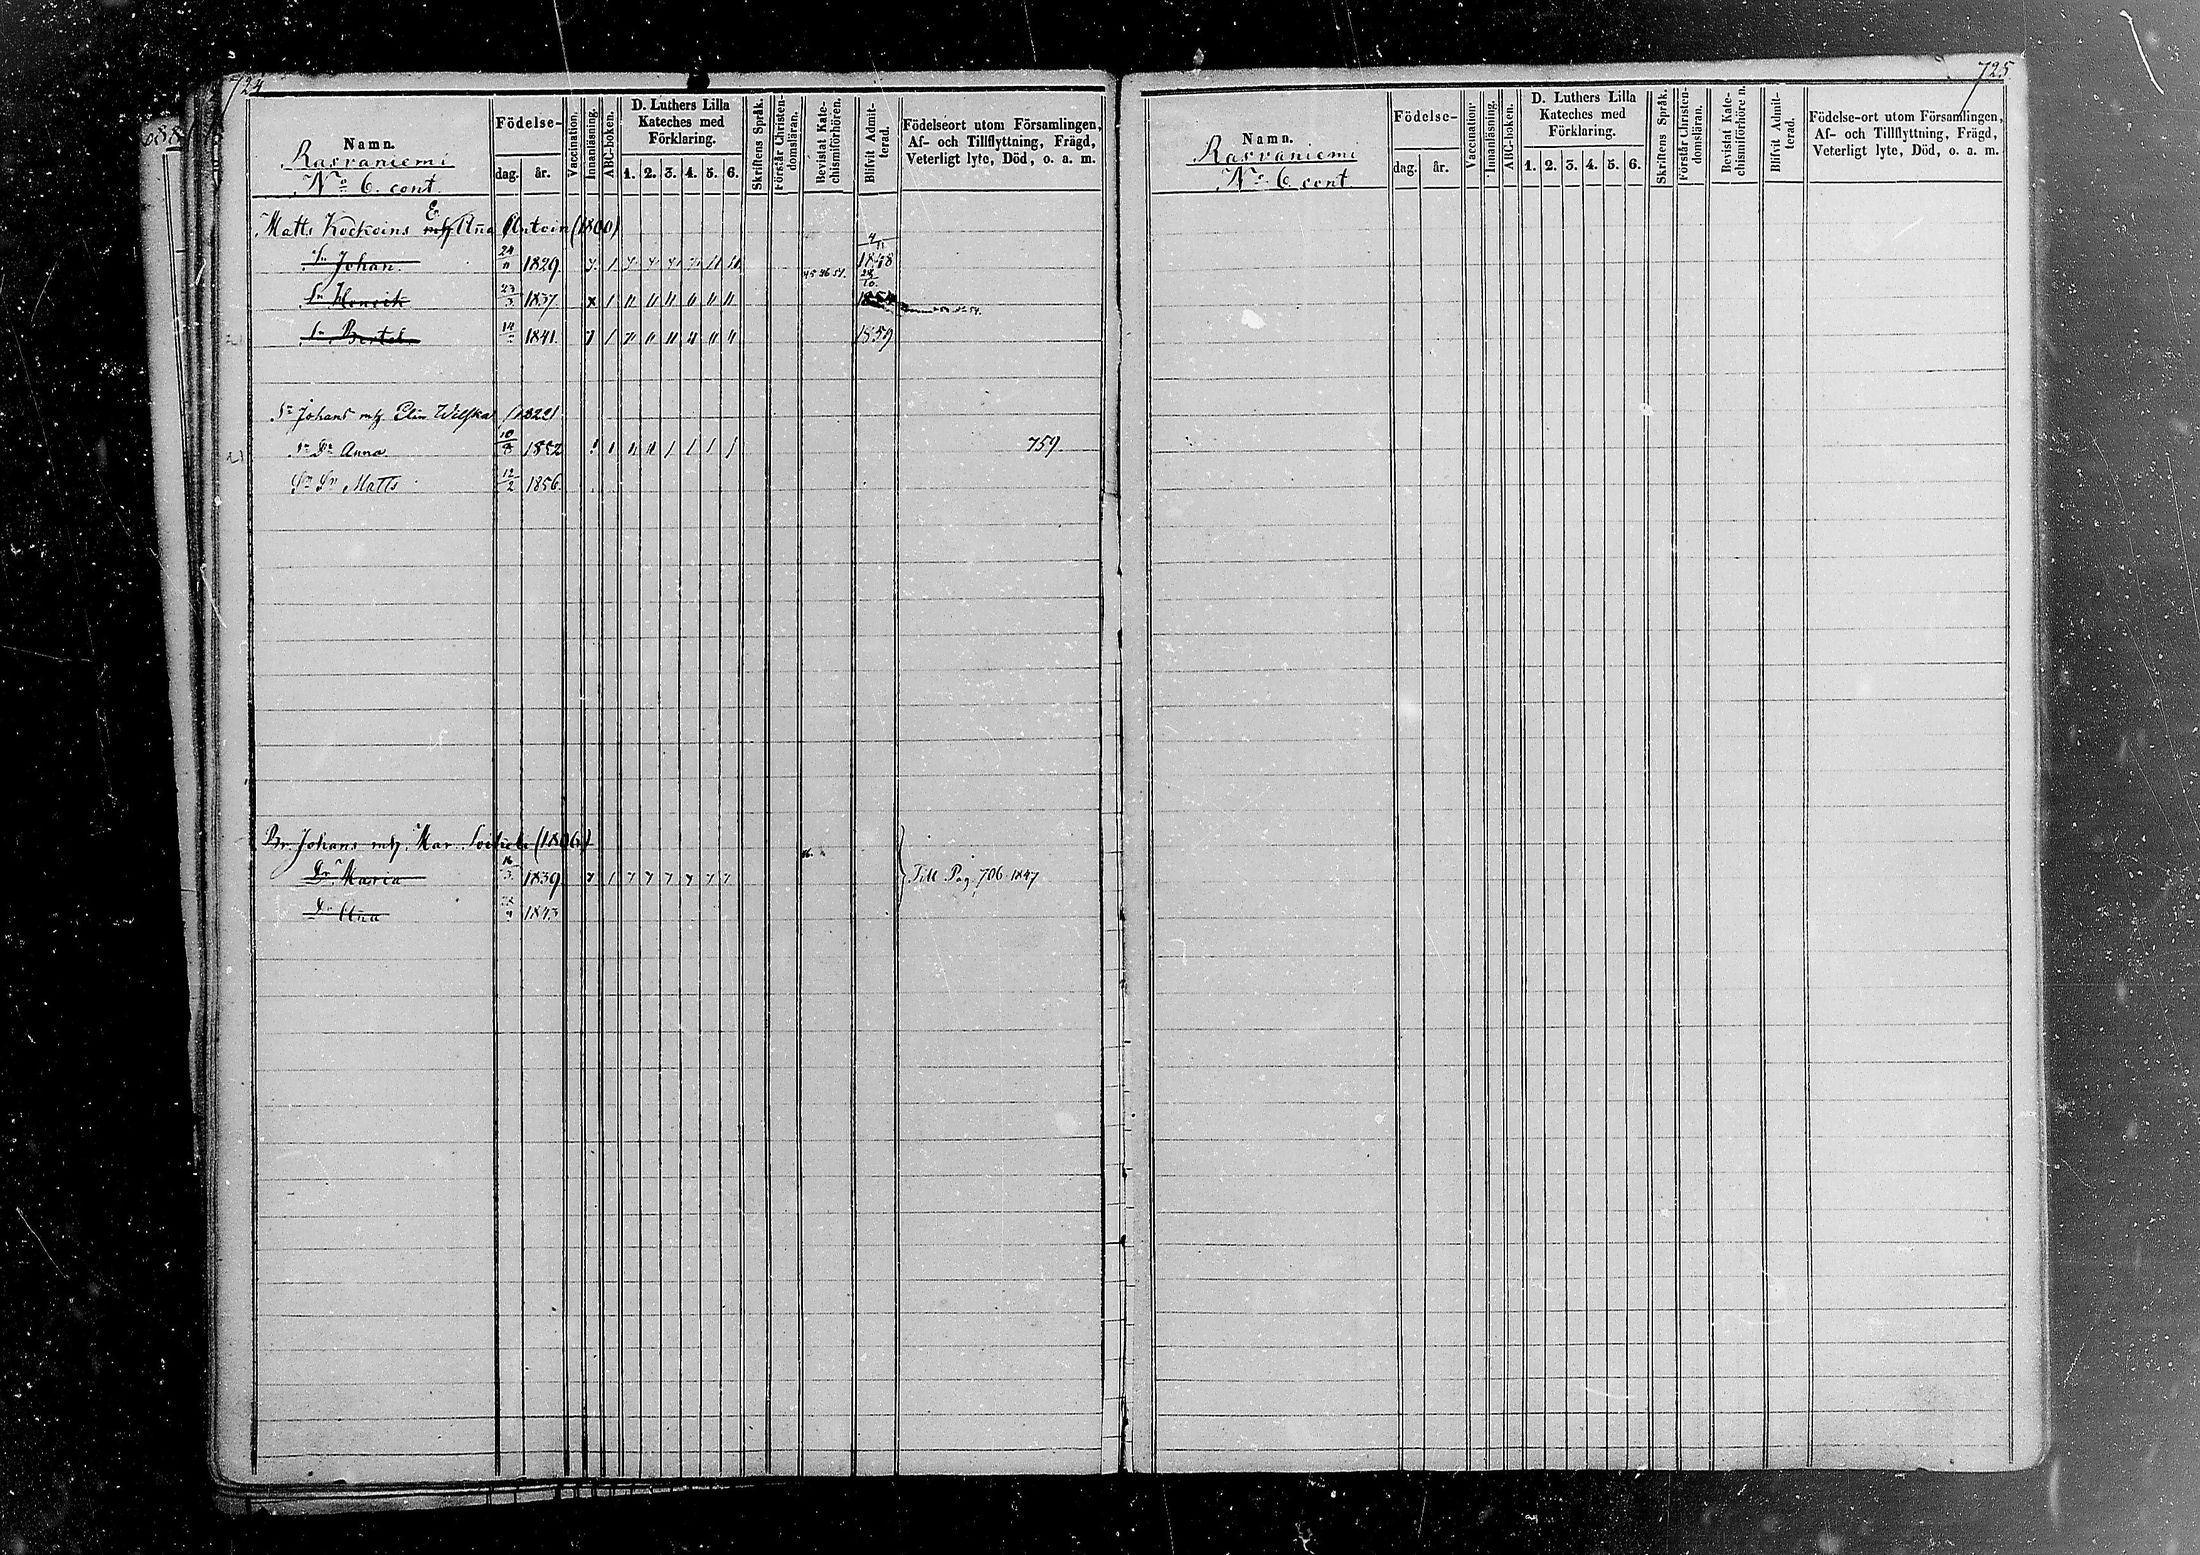 724
Namn.
Rasvaniemi
No 6. cont.
Födelse-
dag. år.
Vaccination.
Innanläsning.
ABC-boken.
D. Luthers Lilla
Kateches med
Förklaring.
1. 2. 3. 4. 5. 6.
Skriftens Språk.
Förstår Christen-
domsläran.
Bevistat Kate-
chismiförhören.
Blifvit Admit-
terad.
Födelseort utom Församlingen,
Af- och Tillflyttning, Frägd,
Veterligt lyte, Död, o. a. m.
Matts Kockoins E mhg Aña (1800)
Sn Johan 24/11 1829 4/11 1848
45 46 51.
Sn Henrik 23/3 1837 28/10
Sn Bertel 14 1841 1859
Sn Johans mhg Elin (1822)
Sn Dr Anna 10/8 1852 759.
Sn Sn Matts 12/2 1856.
Br Johans mhg. Mar. (1806)
Dr Maria 16/3 1839 Till Pag. 706 1847
Dr Aña 1843
725
Namn.
Rasvaniemi
No 6. cont
Födelse-
dag. år.
Vaccination.
Innanläsning.
ABC-boken.
D. Luthers Lilla
Kateches med
Förklaring.
1. 2. 3. 4. 5. 6.
Skriftens Språk.
Förstår Christen-
domsläran.
Bevistat Kate-
chismiförhöre n.
Blifvit Admit-
terad.
Födelse-ort utom Församlingen,
Af- och Tillflyttning, Frägd,
Veterligt lyte, Död, o. a. m.